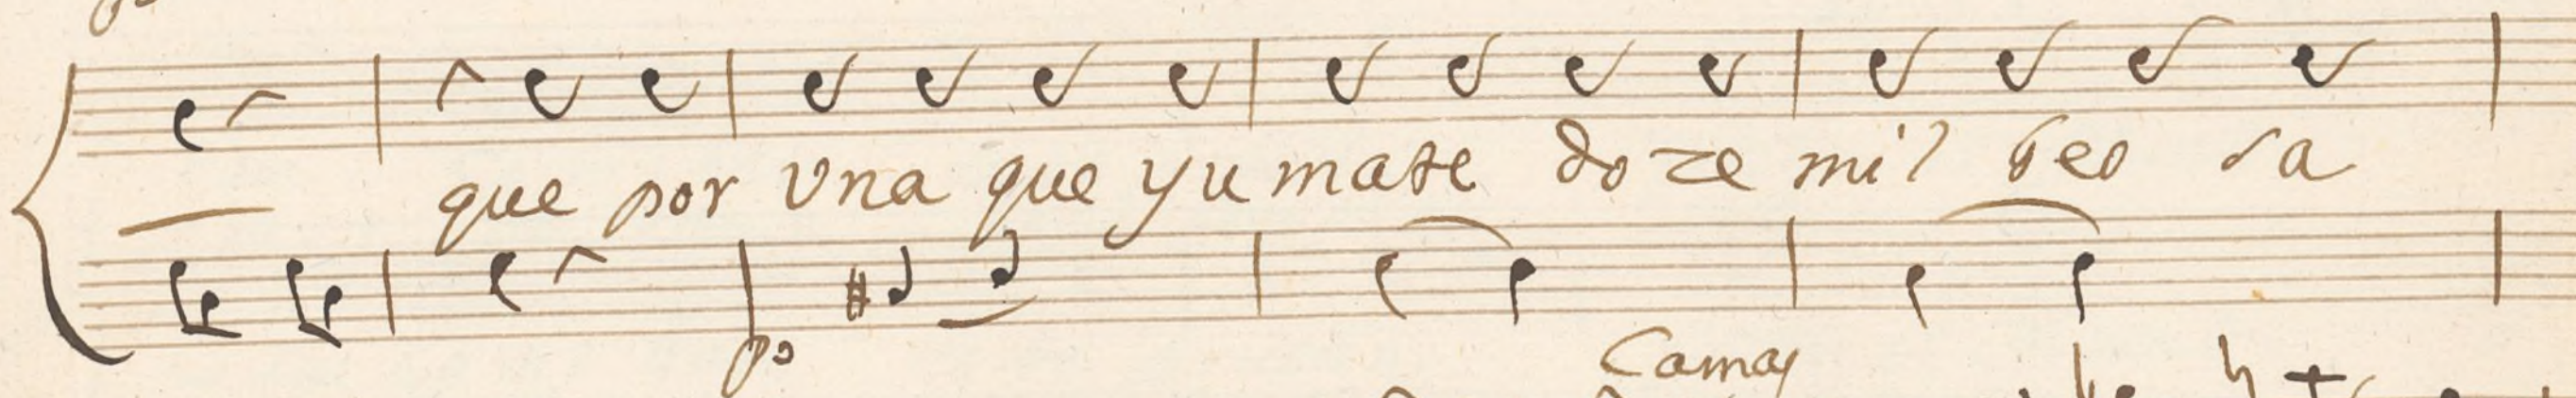 que por vna que yu mate doze mil
po
Camas